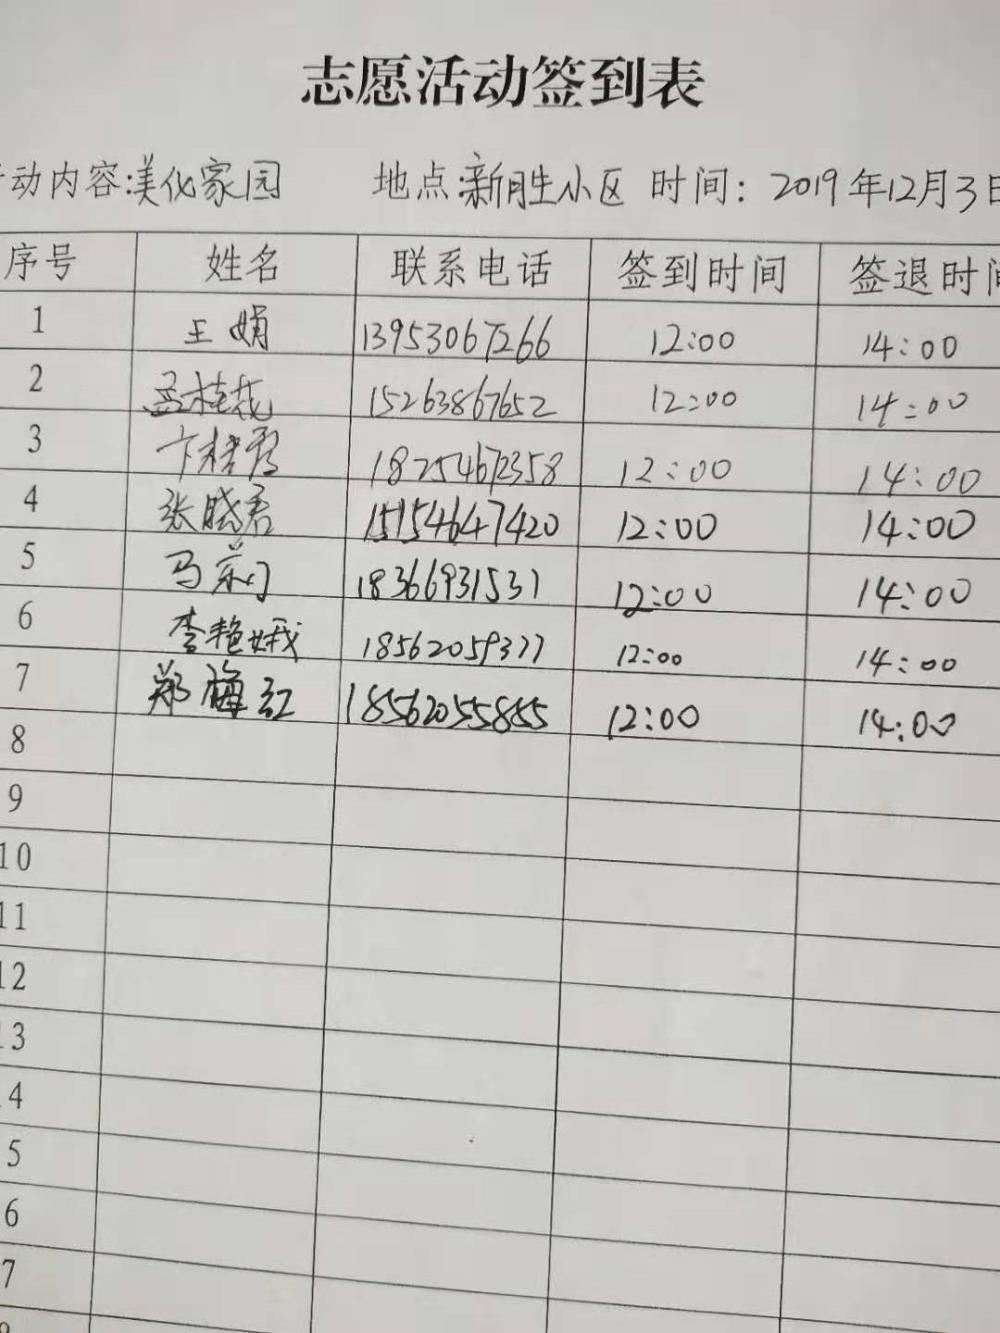 志愿活动签到表
动内容:美化家园 地点:新胜小区 时间: 2019年12月3日
序号 姓名 联系电话 签到时间 签退时间
1 王娟 13953067266 12:00 14:00
2 孟桂花 15263867652 12:00 14:00
3 卞桂秀 18254672358 12:00 14:00
4 张晓君 15154647420 12:00 14:00
5 马 18366931531 12:00 14:00
6 李艳娥 18562059377 12:00 14:00
7 郑梅红 18562055855 12:00 14:00
8
9
10
11
12
13
4
5
6
7